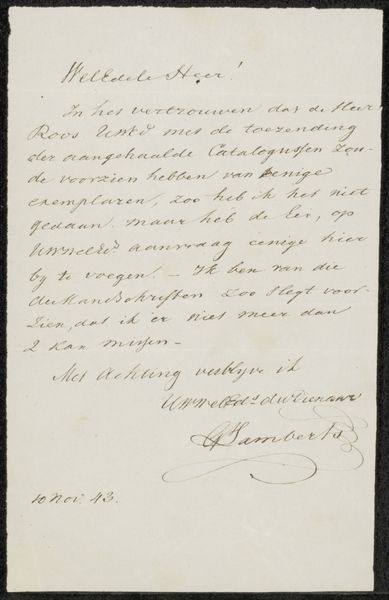 WelEdele Heer!
In het vertrouwen dat de Heer
Roos UWEd met de toezending
der aangehaalde Catalogussen zou-
de voorzien hebben van eenige
exemplaren, zoo heb ik het niet
gedaan. maar heb de Eer, op
UWWelEd. aanvraag eenige hier
by te voegen – Ik ben van die
der Handschriften zoo slegt voor-
zien, dat ik er niet meer dan
2 kan missen –
Met Achting verblyve ik
UWWelEds. dw Dienaar
Lamberts
10 Nov. 43.